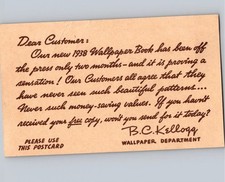 Dear Customer:
Our new 1938 Wallpaper Book has been off
the press only two months—and it is proving a
sensation! Our Customers all agree that they
have never seen such beautiful patterns...
Never such money-saving values. If you haven't
received your free copy, won't you send for it today?
B.C. Kellogg
WALLPAPER DEPARTMENT
PLEASE USE
THIS POSTCARD